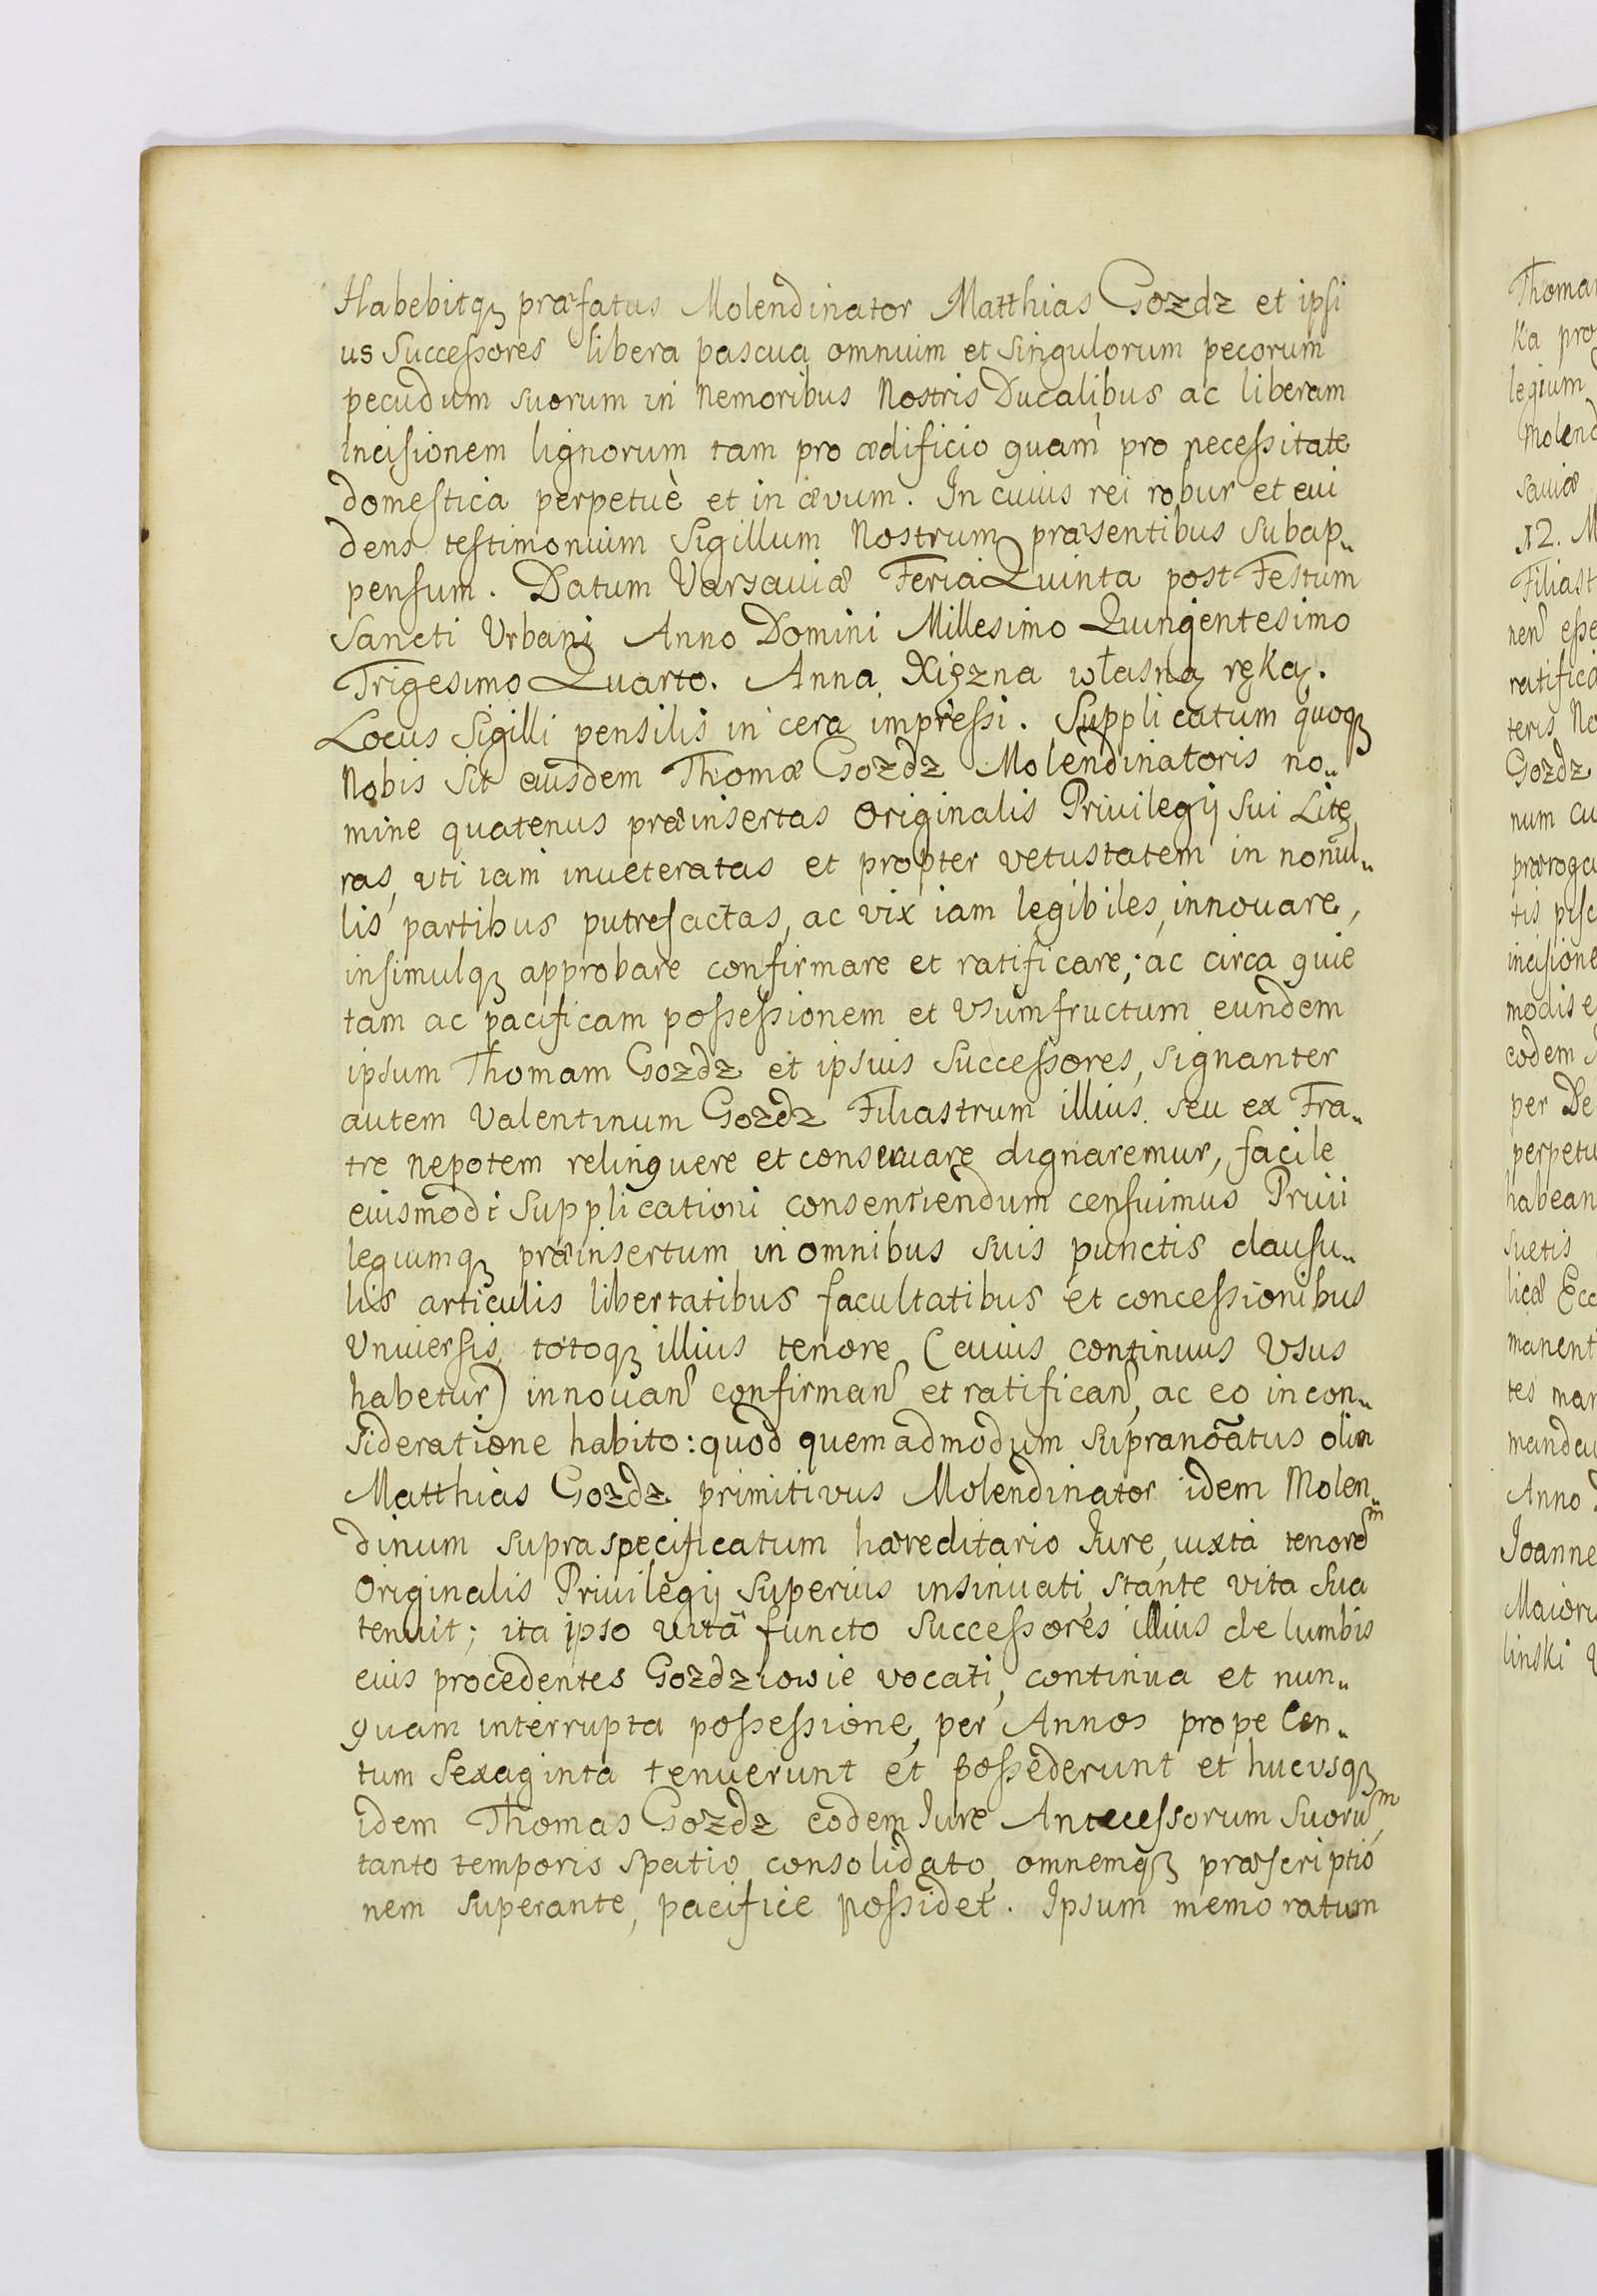 Habebitqȝ præfatus Molendinator Matthias Gozdz et ipsi
us Successores libera pascua omnium et singulorum pecorum
pecudum suorum in Nemoribus Nostris Ducalibus ac liberam
Incisionem lignorum tam pro ædificio quam pro necessitate
domestica perpetuè et in ævum. In cuius rei robur et eui
dens testimonium Sigillum Nostrum præsentibus subap„
pensum. Datum Varsauiæ Feria Quinta post Festum
Sancti Urbani Anno Domini Millesimo Quingentesimo
Trigesimo Quarto. Anna Xięzna własną ręką.
Locus Sigilli pensilis in cera impressi. Supplicatum quoqȝ
Nobis sit eiusdem Thomæ Gozdz Molendinatoris no„
mine quatenus præinsertas Originalis Priuilegij sui Litę
ras, vti iam inueteratas et propter vetustatem in nonul„
lis partibus putrefactas, ac vix iam legibiles, innouare,
insimulqȝ approbare confirmare et ratificare; ac circa quie
tam ac pacificam possessionem et Vsumfructum eundem
ipsum Thomam Gozdz et ipsius Successores, signanter
autem Valentinum Gozdz Filiastrum illius seu ex Fra„
tre nepotem relinquere et conseruare dignaremur, facile
eiusmodi supplicationi consentiendum censuimus Priui
legiumqȝ præinsertum in omnibus suis punctis clausu„
lis articulis libertatibus facultatibus et concessionibus
Vniuersis, totoqȝ illius tenore (cuius continuus Vsus
habetur) innouanˢ confirmanˢ et ratificanˢ, ac eo in con„
sideratione habito: quod quemadmodum supranoãtus olim
Matthias Gozdz primitivus Molendinator idem Molen„
dinum supraspecificatum hæreditario Iure, iuxta tenoreᵐ
Originalis Priuilegij superius insinuati, stante vita sua
tenuit; ita ipso vitâ functo Successores illius de lumbis
eius procedentes Gozdziowie vocati, continua et nun„
quam interrupta possessione, per Annos prope Cen„
tum Sexaginta tenuerunt et possederunt et hucvsqȝ
idem Thomas Gozdz eodem Iure Antecessorum suoruᵐ,
tanto temporis spatio consolidato, omnemqȝ præscriptio
nem superante, pacifice possidet. Ipsum memoratum
Thoma
ka præ
legium
Molend
sauiæ
12. M
Filiast
nenˢ esse
ratifica
teris No
Gozdz
num cu
præroga
tis pisc
incisione
modis e
eodem
per De
perpetu
habean
suetis
licæ Ecc
manent
tes man
mandau
Anno
Joanne
Maioru
linski